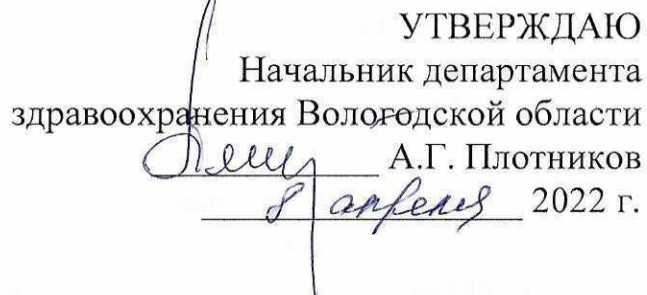 УТВЕРЖДАЮ
Начальник департамента
здравоохранения Вологодской области
А.Г. Плотников
8 апреля 2022 г.